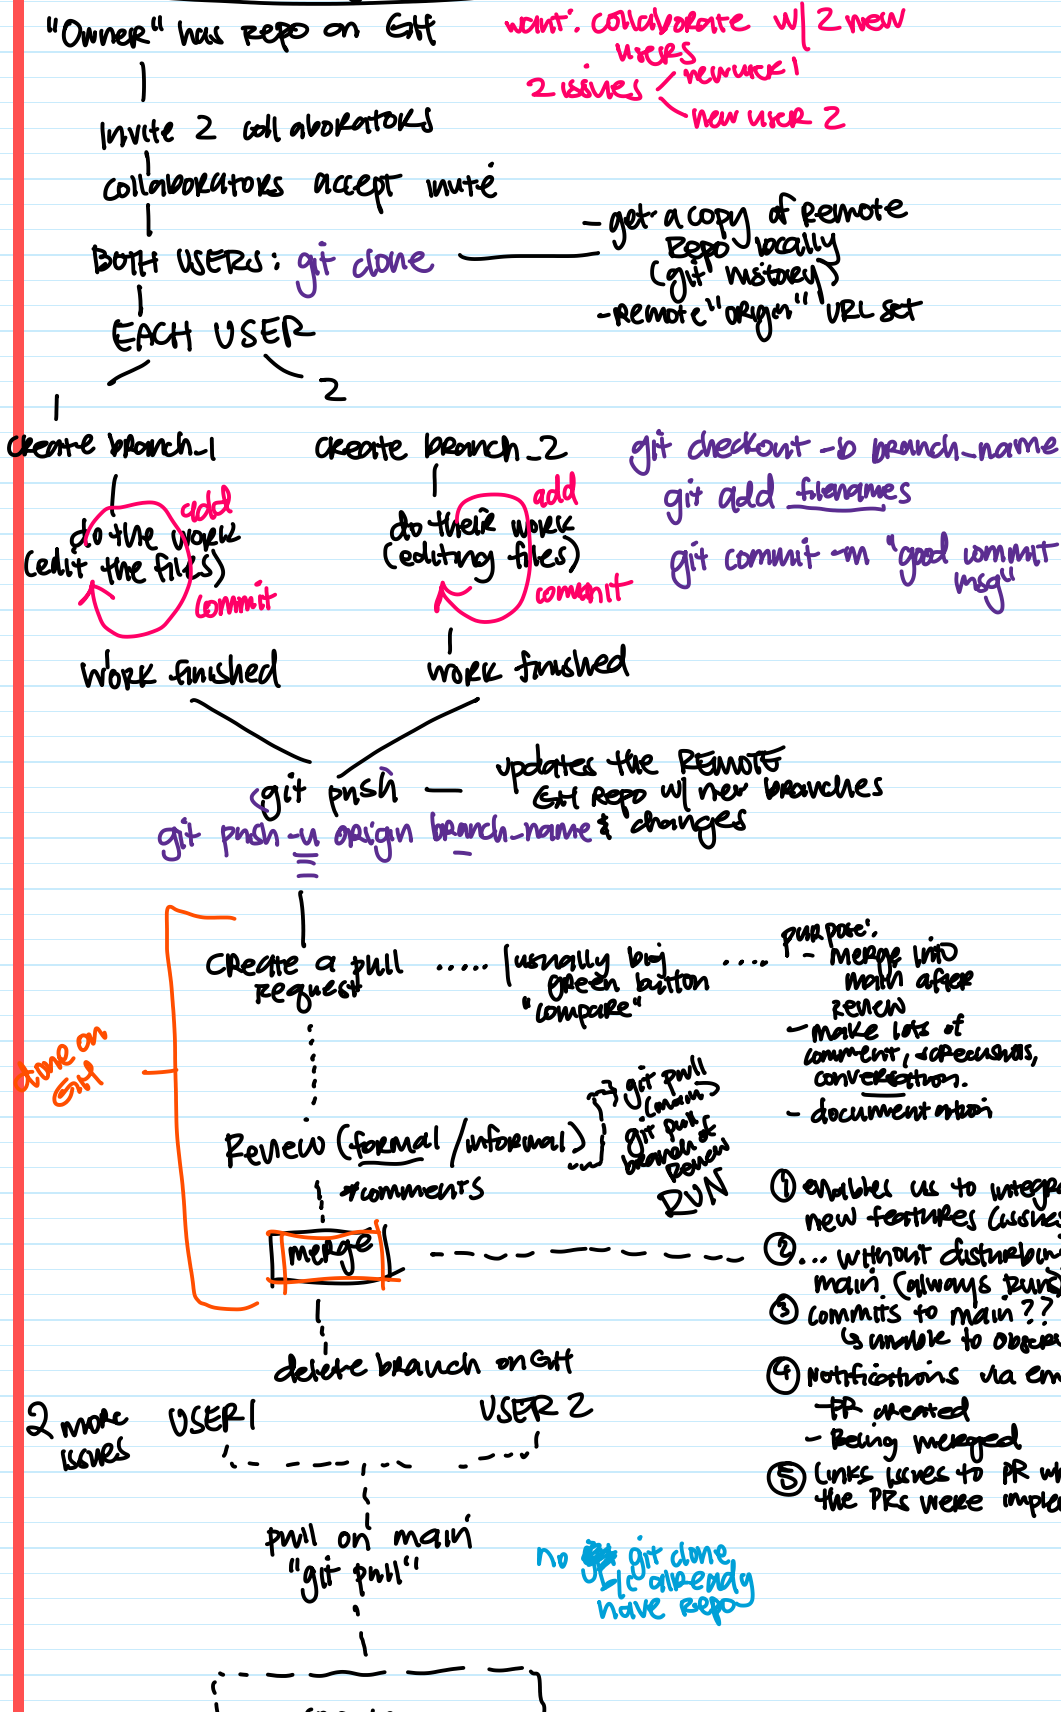 "Owner" has repo on GH
want: collaborate w/ 2 new
users
2 issues
new user 1
new user 2
Invite 2 collaborators
collaborators accept invite
BOTH USERS: git clone
- get a copy of Remote
Repo locally
(git history)
- Remote "origin" URL set
EACH USER
1
2
create branch_1
create branch_2
git checkout -b branch_name
git add filenames
git commit -m "good commit
msg"
add
do the work
(edit the files)
commit
add
do their work
(editing files)
commit
work finished
work finished
git push
updates the REMOTE
GH Repo w/ new branches
& changes
git push -u origin branch_name
done on
GH
Create a pull
request
usually big
green button
"compare"
purpose:
- merge into
main after
review
- make lots of
comment, discussions,
conversation.
- documentation
Review (formal/informal)
comments
git pull
(main)
git pull
branch of
review
RUN
merge
① enables us to integra
new features (issues
② ... without disturbin
main (always runs)
③ commits to main??
↳ unable to observ
④ Notifications via em
- PR created
- Being merged
⑤ Links issues to PR wh
the PRs were imple
delete branch on GH
2 more
issues
USER 1
USER 2
pull on main
"git pull"
no git clone
b/c already
have repo